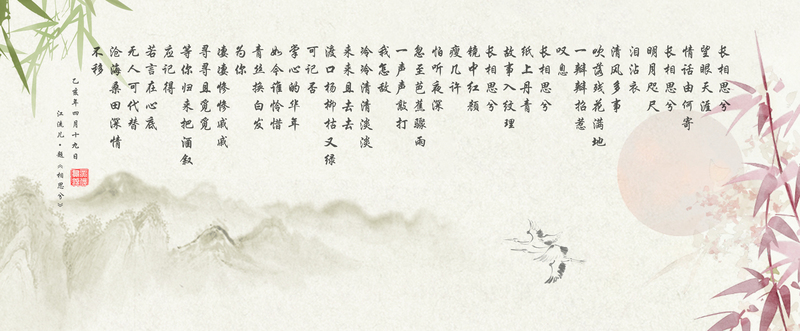 长相思兮
望眼天涯
情话由何寄
长相思兮
明月咫尺
泪沾衣
清风多事
吹落残花满地
一瓣瓣掐惹
叹息
长相思兮
纸上丹青
故事入纹理
长相思兮
镜中红颜
瘦几许
怕听夜深
忽至芭蕉骤雨
一声声敲打
我怎敌
冷冷清清淡淡
来来且去去
渡口杨柳枯又绿
可记否
掌心的华年
如今谁怜惜
青丝换白发
为你
凄凄惨惨戚戚
寻寻且觅觅
等你归来把酒叙
应记得
若言在心底
无人可代替
沧海桑田深情
不移
乙亥年四月十九日
江流儿·题《相思兮》